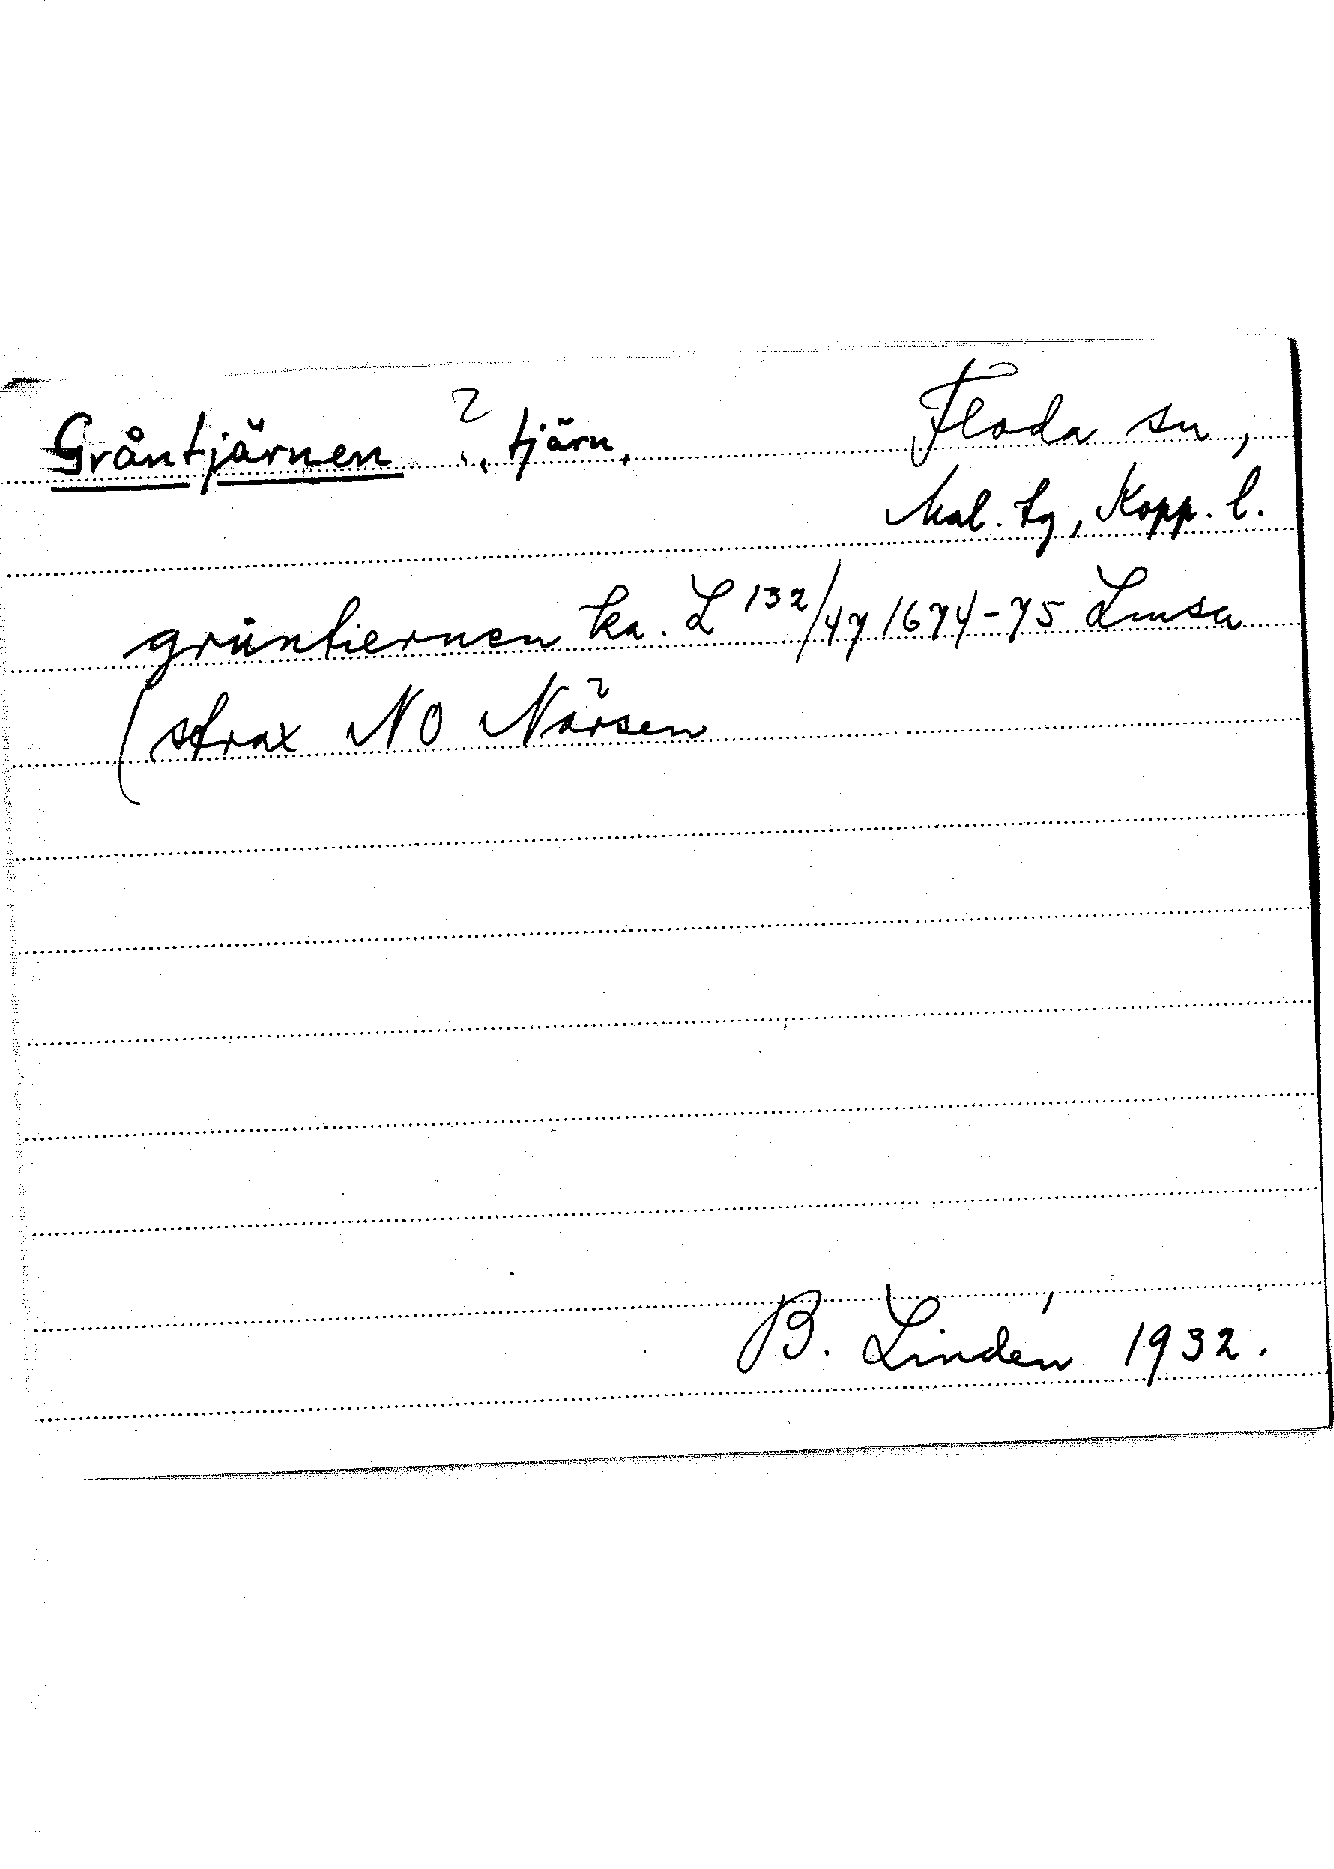 Gråntjärnen ?, tjärn. Floda sn,
Mal. tg, Kopp. l.
gråntiernen ka. L 132/47 1674-75 Lmsa
(strax NO Närsen
B. Lindén 1932.